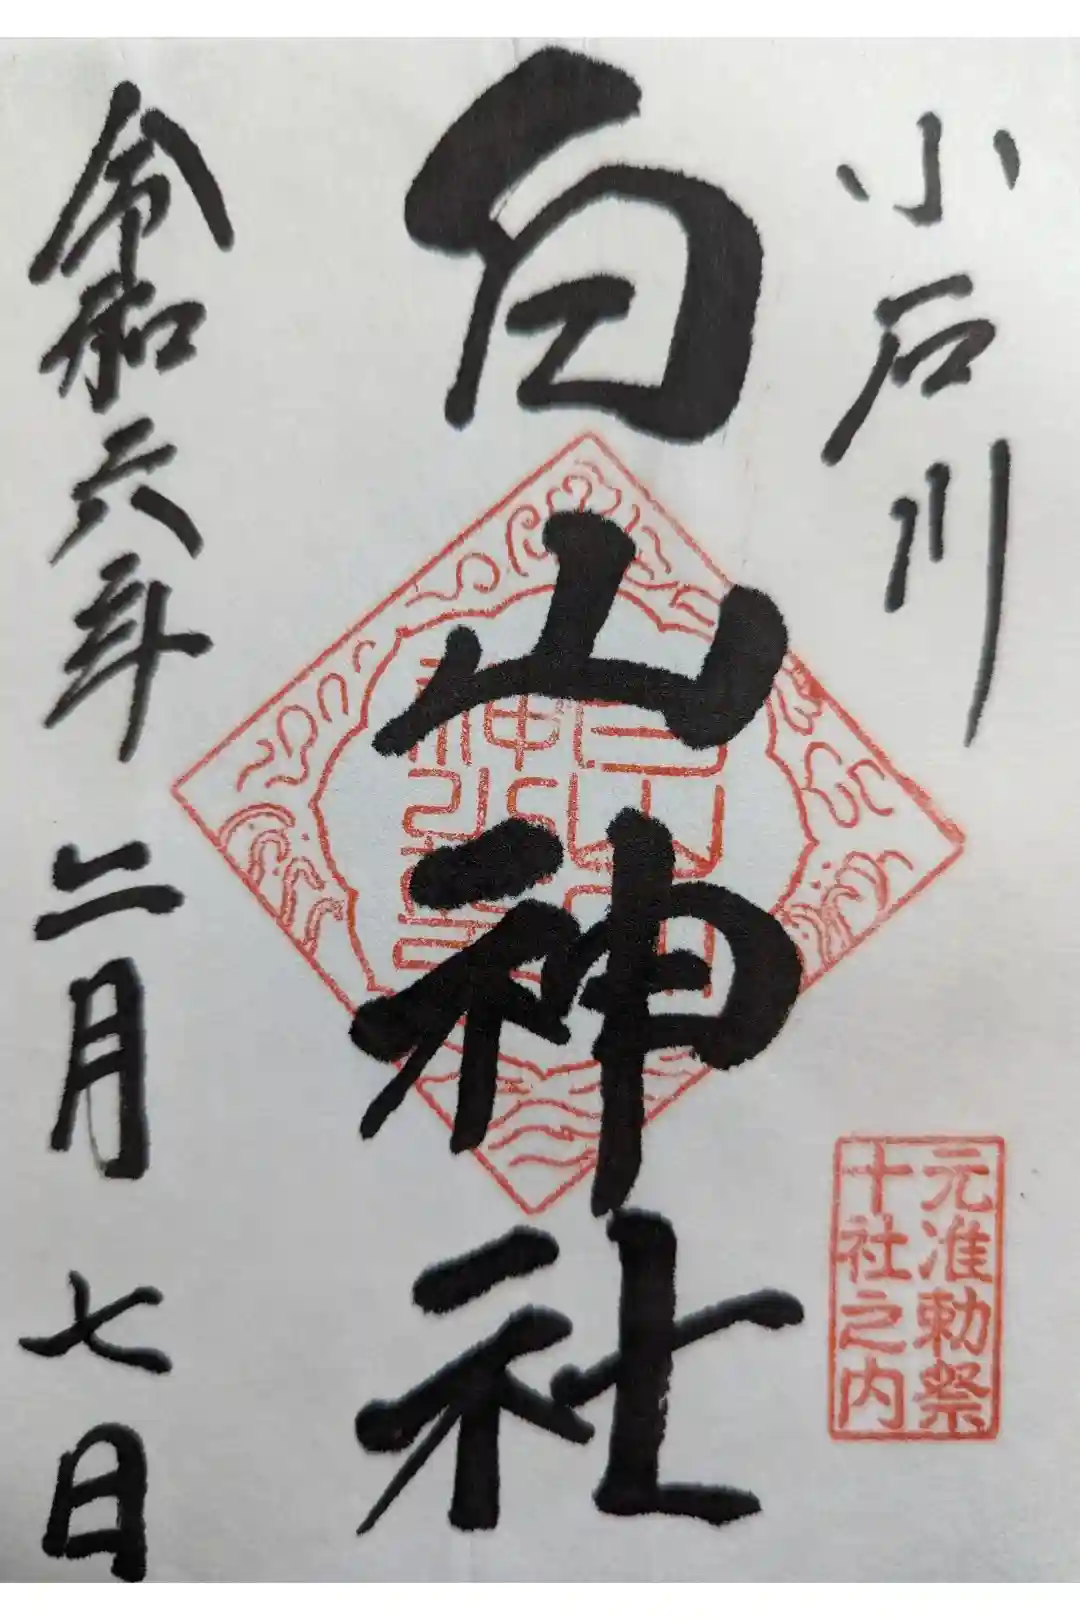 小石川
元准勅祭
十社之内
白山神社
令和六年二月七日